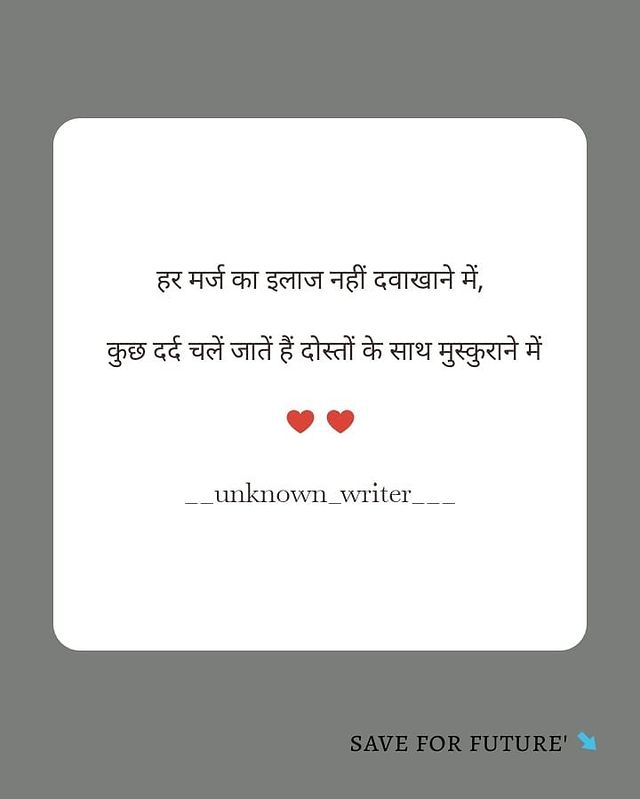 हर मर्ज का इलाज नहीं दवाखाने में,
कुछ दर्द चलें जातें हैं दोस्तों के साथ मुस्कुराने में
❤️ ❤️
__unknown_writer___
SAVE FOR FUTURE' ↘